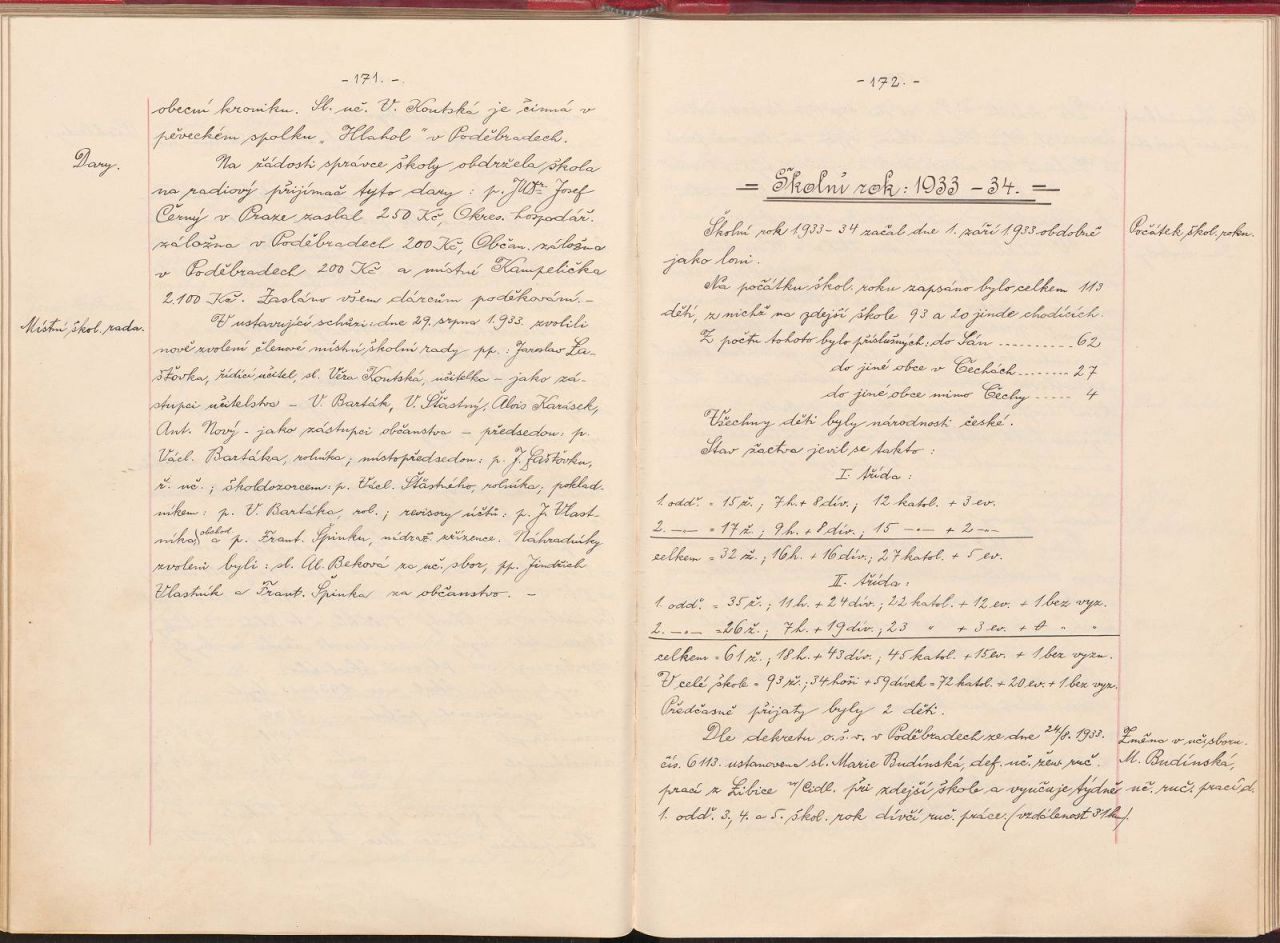 - 171. -
obecní kroniku. Sl. uč. V. Koutská je činná v
pěveckém spolku „Hlahol" v Poděbradech.
Dary.
Na žádosti správce školy obdržela škola
na radiový přijímač tyto dary : p. JUDr. Josef
Černý v Praze zaslal 250 Kč, Okres. hospodář.
záložna v Poděbradech 200 Kč, Občan. záložna
v Poděbradech 200 Kč a místní Kampelička
2.100 Kč. Zasláno všem dárcům poděkování. -
Místní škol. rada.
V ustavující schůzi dne 29. srpna 1.933 zvolili
nově zvolení členové místní školní rady pp. : Jaroslav La-
šťovka, řídící učitel, sl. Věra Koutská, učitelka - jako zá-
stupci učitelstva - V. Barták, V. Šťastný, Alois Karásek,
Ant. Nový - jako zástupci občanstva - předsedou : p.
Václ. Bartáka, rolníka ; místopředsedou : p. J. Laštovku,
ř. uč. ; školdozorcem : p. Václ. Šťastného, rolníka ; poklad-
níkem : p. V. Bartáka, rol. ; revisory účtů : p. J. Vlast-
níka, obchod. a p. Frant. Špinku, nádraž. zřízence. Náhradníky
zvoleni byli : sl. Al. Beková za uč. sbor, pp. Jindřich
Vlastník a Frant. Špinka za občanstvo. -
- 172. -
= Školní rok : 1933 - 34. =
Počátek škol. roku.
Školní rok 1933 - 34 začal dne 1. září 1933 obdobně
jako loni.
Na počátku škol. roku zapsáno bylo celkem 113
dětí, z nichž na zdejší škole 93 a 20 jinde chodících.
Z počtu tohoto bylo příslušných : do Sán .......... 62
do jiné obce v Čechách ........ 27
do jiné obce mimo Čechy ...... 4
Všechny děti byly národnosti české.
Stav žactva jevil se takto :
I. třída :
1. odď. = 15 ž. ; 7 h. + 8 dív. ; 12 katol. + 3 ev.
2. -"- = 17 ž. ; 9 h. + 8 dív. ; 15 -"- + 2 -"-
celkem = 32 ž. ; 16 h. + 16 dív. ; 27 katol. + 5 ev.
II. třída :
1. odď. = 35 ž. ; 11 h. + 24 dív. ; 22 katol. + 12 ev. + 1 bez vyz.
2. -"- = 26 ž. ; 7 h. + 19 dív. ; 23 " + 3 ev. + 0 " "
celkem = 61 ž. ; 18 h. + 43 dív. ; 45 katol. + 15 ev. + 1 bez vyzn.
V celé škole = 93 ž. ; 34 hoši + 59 dívek = 72 katol. + 20 ev. + 1 bez vyz.
Předčasně přijaty byly 2 děti.
Změna v uč. sboru.
M. Budínská,
uč. ruč. prací d.
Dle dekretu o. š. v. v Poděbradech ze dne 24/8. 1933.
čís. 6113. ustanovena sl. Marie Budínská, def. uč. žen. ruč.
prací z Libice n/Cidl. při zdejší škole a vyučuje týdně
1. odď. 3., 4. a 5. škol. rok dívčí ruč. práce. (vzdálenost